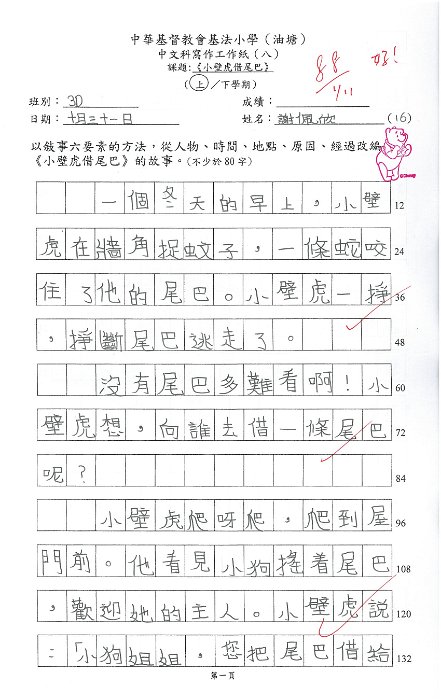 中華基督教會基法小學（油塘）
中文科寫作工作紙（八）
課題：《小壁虎借尾巴》
（上／下學期）
88
1/11
好！
班別：3D
成績：
日期：十月三十一日
姓名：謝佩欣 （16）
以敍事六要素的方法，從人物、時間、地點、原因、經過改編
《小壁虎借尾巴》的故事。（不少於80字）
一個冬天的早上，小壁 12
虎在牆角捉蚊子，一條蛇咬 24
住了他的尾巴。小壁虎一掙 36
，掙斷尾巴逃走了。 48
沒有尾巴多難看啊！小 60
壁虎想，向誰去借一條尾巴 72
呢？ 84
小壁虎爬呀爬，爬到屋 96
門前。他看見小狗搖着尾巴 108
，歡迎她的主人。小壁虎說 120
：「小狗姐姐，您把尾巴借給 132
第一頁